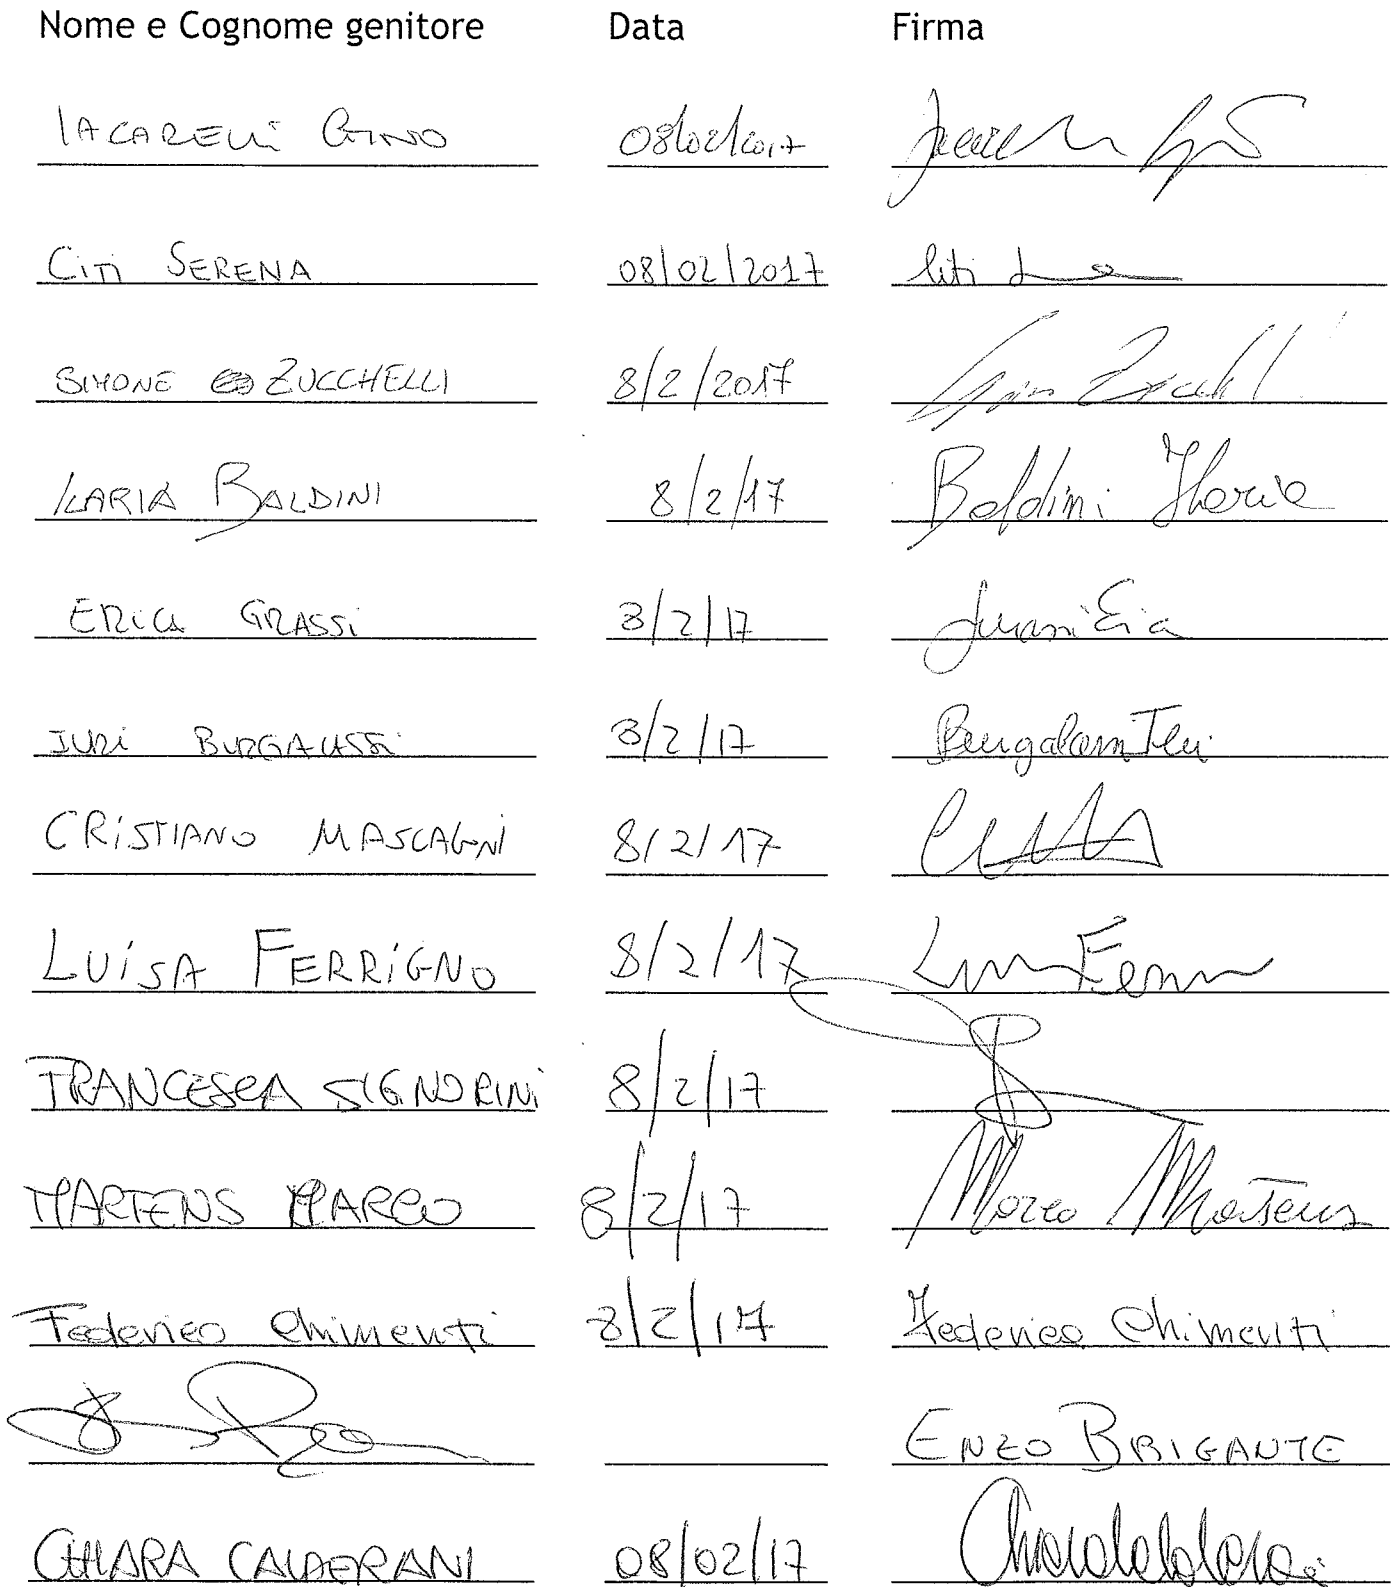 Nome e Cognome genitore Data Firma
IACARELLI GINO 08/02/2017
CITI SERENA 08/02/2017 Citi
SIMONE ZUCCHELLI 8/2/2017
ILARIA BALDINI 8/2/17 Baldini Ilaria
ERICA GRASSI 8/2/17
JURI BURGALASSI 8/2/17
CRISTIANO MASCAGNI 8/2/17
LUISA FERRIGNO 8/2/17
FRANCESCA SIGNORINI 8/2/17
MARTENS MARCO 8/2/17 Marco Martens
Federico Chimenti 8/2/17 Federico Chimenti
ENZO BRIGANTE
CHIARA CALDERANI 08/02/17